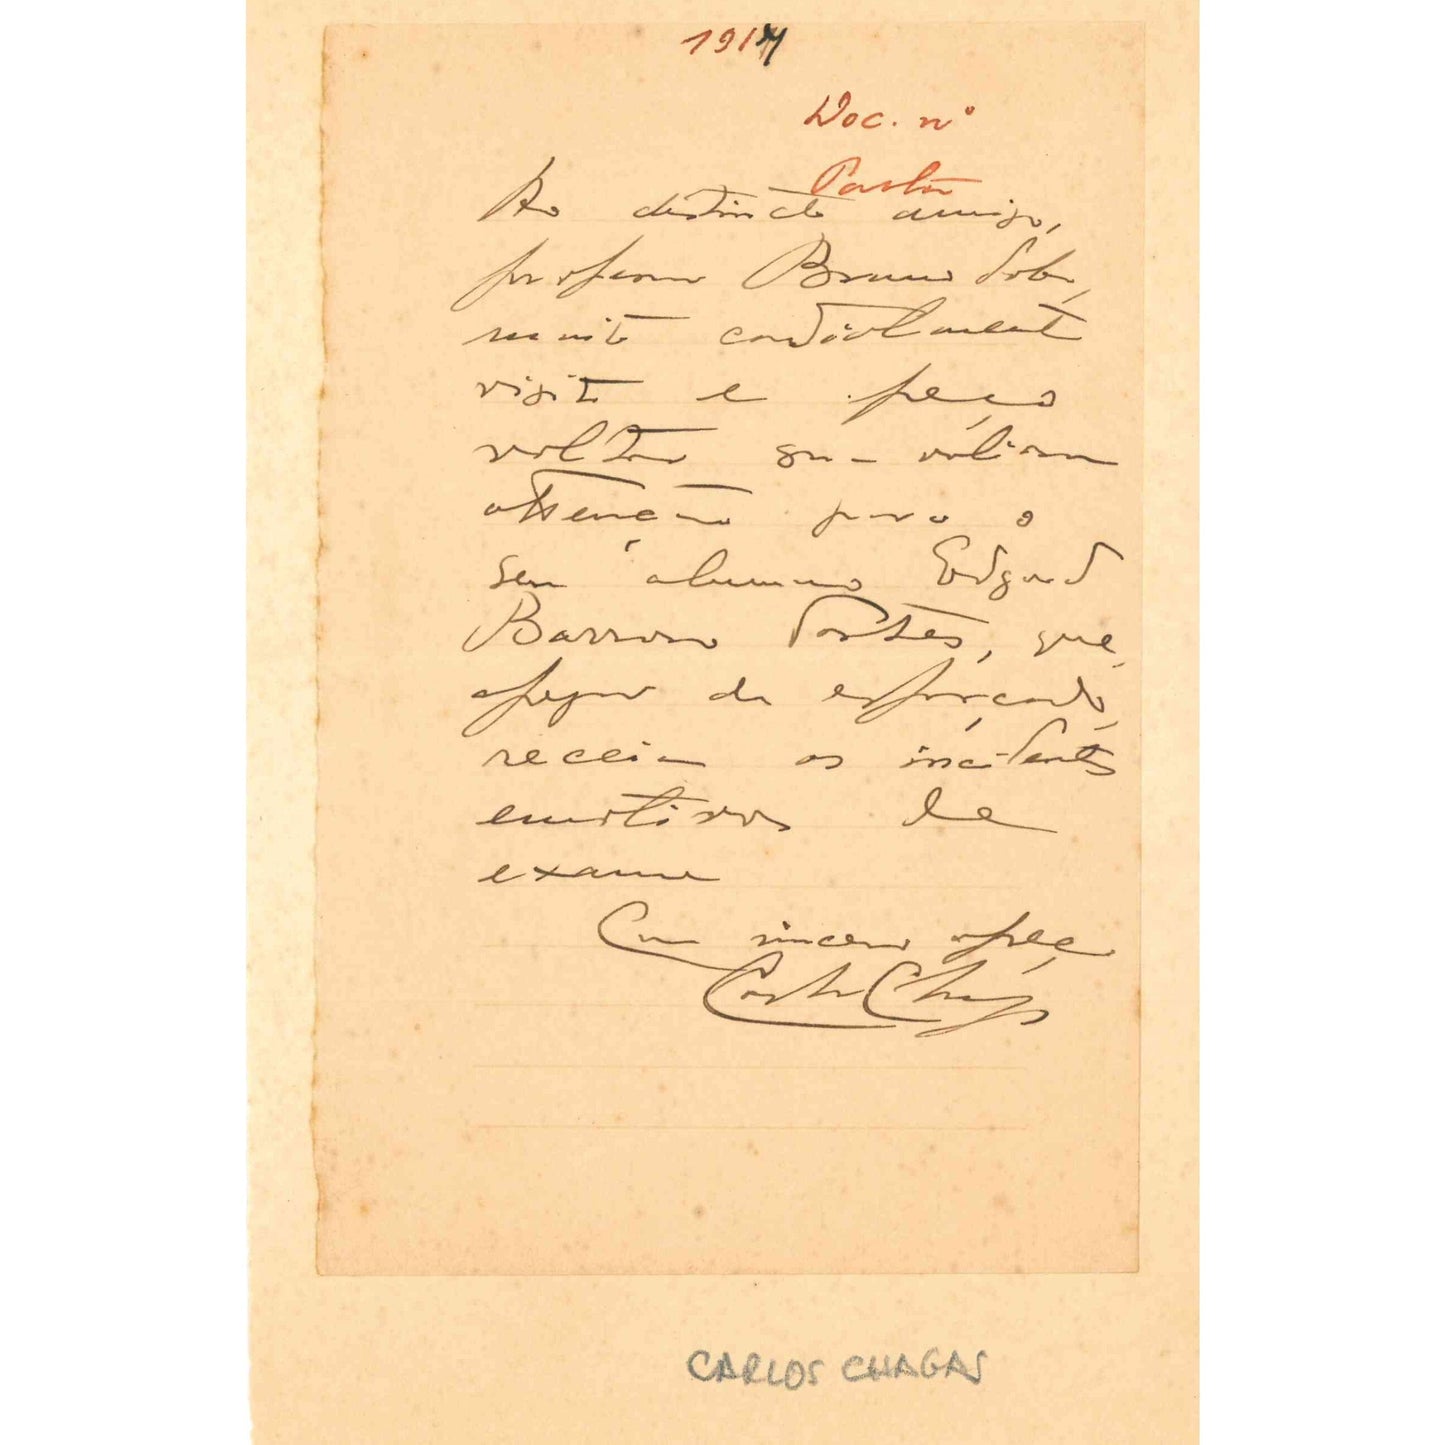 1914
Doc. nº
Pasta
Ao distincto amigo,
professor Bruno Lobo,
muito cordialmente
visito e peço
voltar sua valiosa
attenção para o
seu alumno Edgard
Barroso Tostes, que,
apezar de esforçado,
receia os incidentes
emotivos de
exame
Com sincero apreço
Carlos Chagas
CARLOS CHAGAS